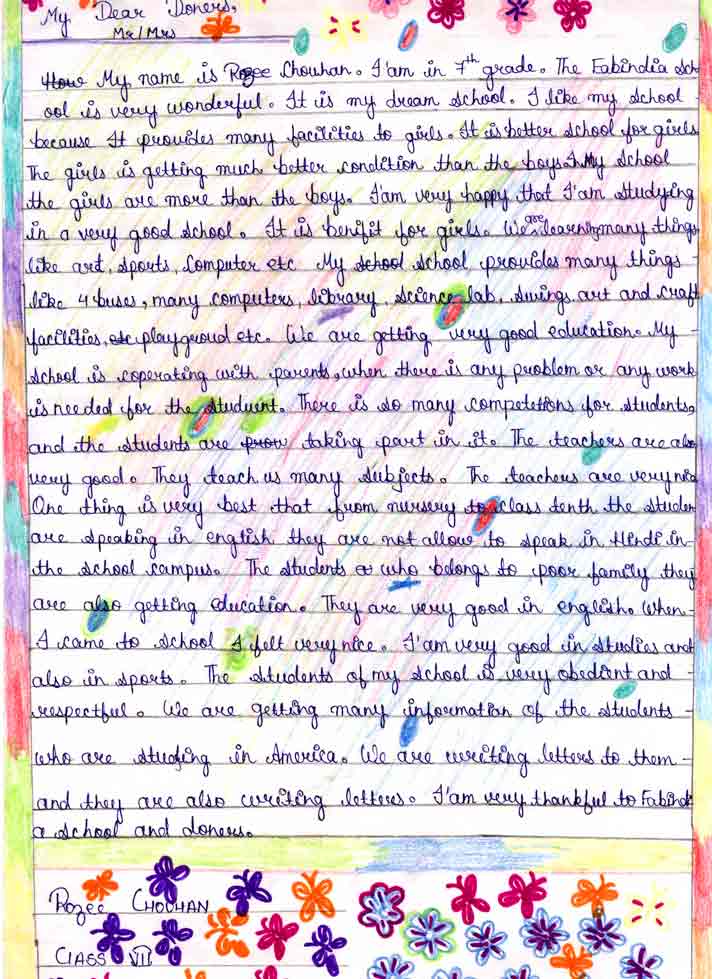 My Dear Doners,
Mr/Mrs
How My name is Rozee Chouhan. I'am in 7th grade. The Fabindia sch
ool is very wonderful. It is my dream school. I like my school
because It provides many facilities to girls. It is better school for girls
The girls is getting much better condition than the boys In My School
the girls are more than the boys. I'am very happy that I'am studying
in a very good school. It is benifit for girls. We are learning many things
like art, sports, Computer etc My school school provides many things -
like 4 buses, many computers, library, science lab, swings, art and craft
facilities, etc playgroud etc. We are getting very good education. My -
school is coperating with parents, when there is any problem or any work
is needed for the studuent. There is so many competetions for students,
and the students are prow taking part in it. The teachers are also
very good. They teach us many subjects. The teachers are very nice
One thing is very best that from nursery to class tenth the studen
are speaking in english they are not allow to speak in Hindi in -
the school campus. The students who belongs to poor family they
are also getting education. They are very good in english. When -
I came to school I felt very nice. I'am very good in studies and
also in sports. The students of my school is very obedient and -
respectful. We are getting many information of the students -
who are studing in America. We are writing letters to them -
and they are also writing letters. I'am very thankful to Fabindi
a school and doners.
Rozee CHOUHAN
CLASS VII